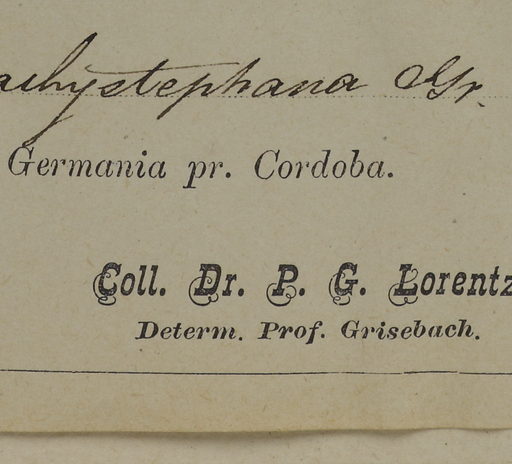 achystephana Gr.
Germania pr. Cordoba.
Coll. Dr. P. G. Lorentz
Determ. Prof. Grisebach.